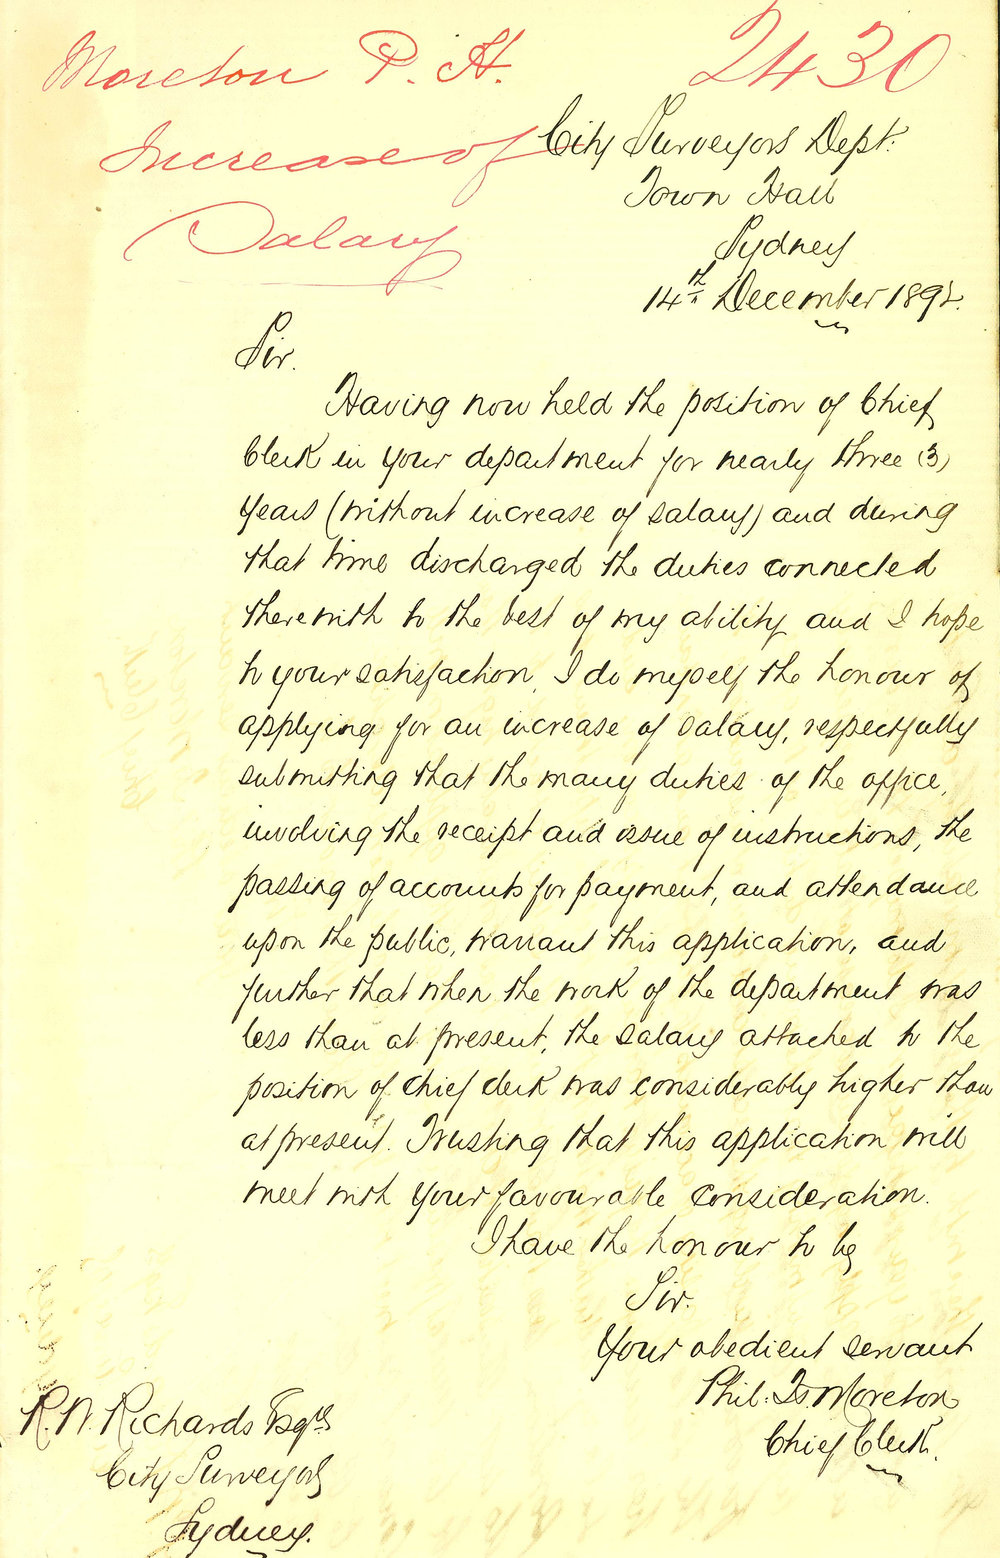 Moreton P. H.
2430
Increase of
Salary
City Surveyors Dept:
Town Hall
Sydney
14th December 1892.
Sir.
Having now held the position of Chief
Clerk in your department for nearly three (3)
years (without increase of salary) and during
that time discharged the duties connected
therewith to the best of my ability and I hope
to your satisfaction, I do myself the honour of
applying for an increase of salary, respectfully
submitting that the many duties of the office,
involving the receipt and issue of instructions, the
passing of accounts for payment, and attendance
upon the public, warrant this application, and
further that when the work of the department was
less than at present, the salary attached to the
position of chief clerk was considerably higher than
at present. Trusting that this application will
meet with your favourable consideration.
I have the honour to be
Sir.
Your obedient servant
Phil. Moreton
Chief Clerk.
R. W. Richards Esqre
City Surveyor
Sydney.